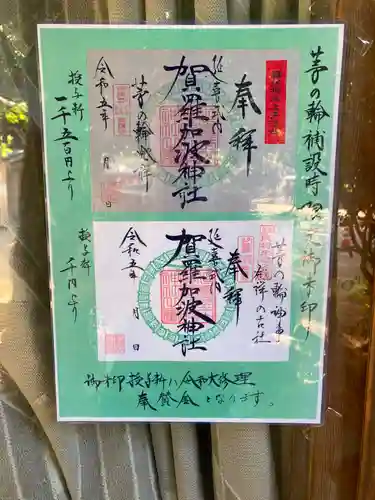 茅の輪補設時限定御朱印
授与料
一千五百円より
奉拝
延喜式内
賀羅加波神社
茅の輪発祥
令和五年 月 日
授与料
千円より
茅の輪神事
発祥の古社
奉拝
延喜式内
賀羅加波神社
令和五年 月 日
御朱印授与料ハ令和大修理
奉賛金となります。